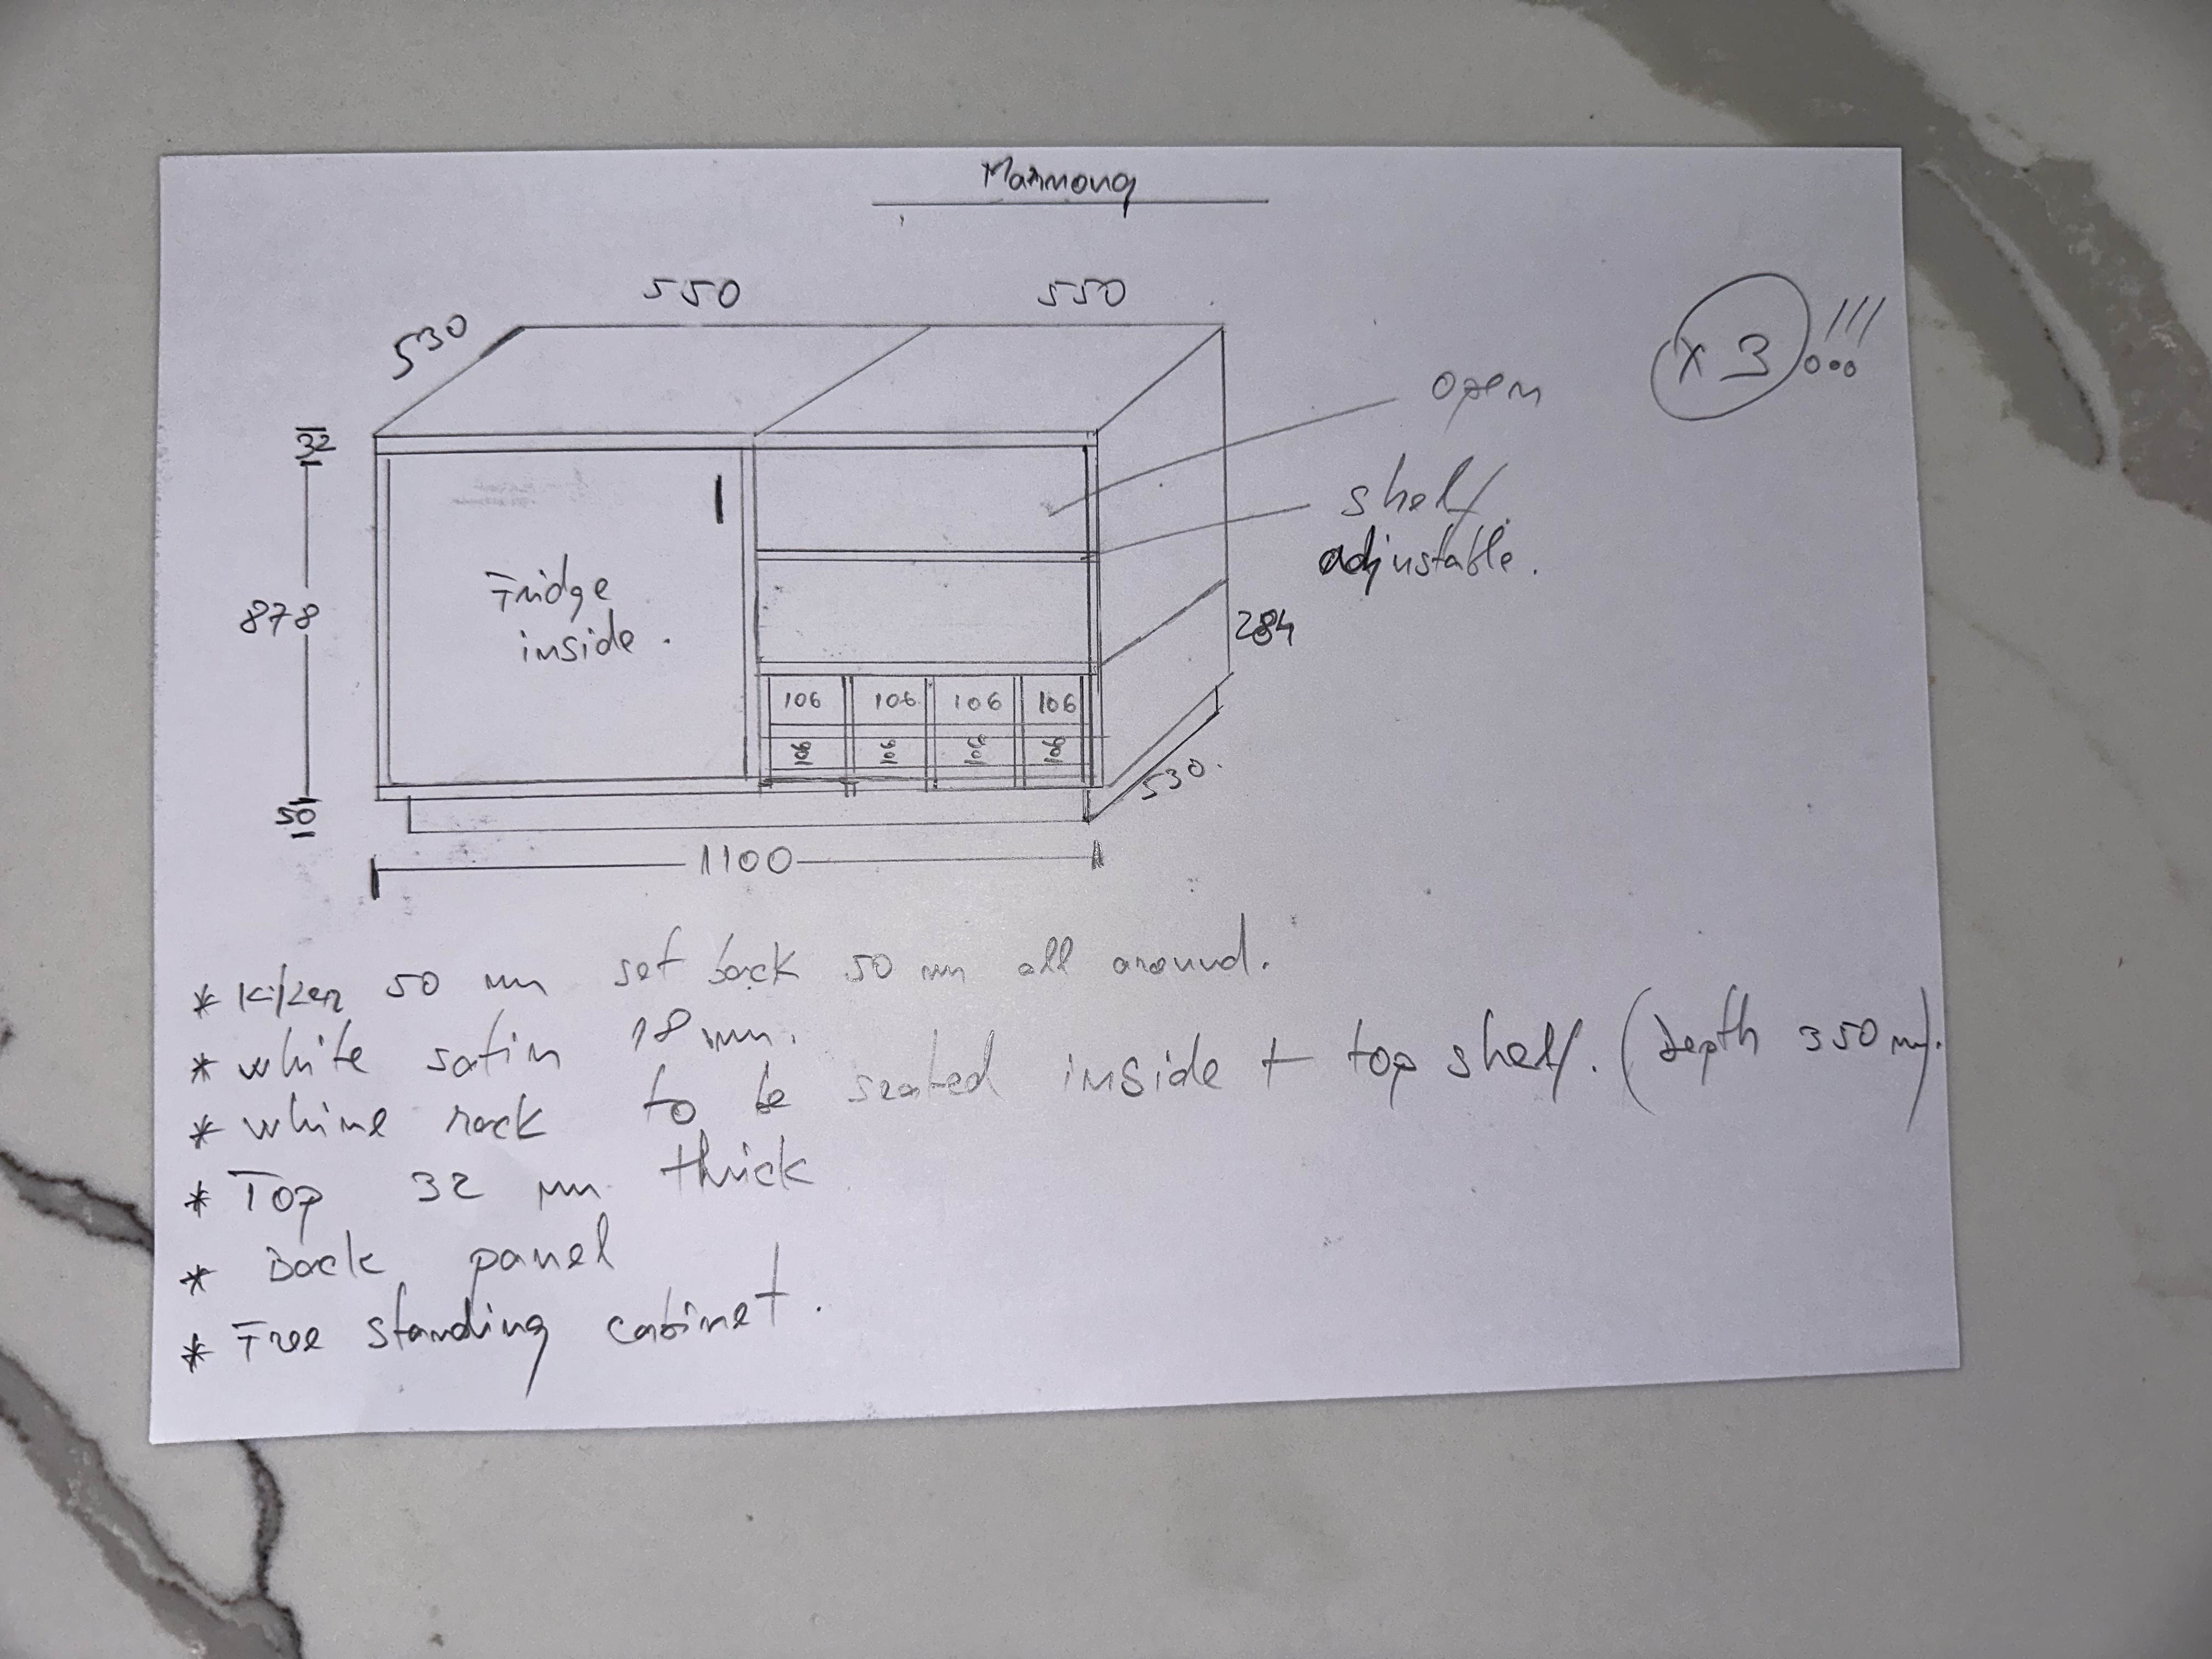 Marmong
550 550
530
32
878
50
x 3 !!!
open
shelf
adjustable.
Fridge
inside.
284
106 106 106 106
106 106 106 106
530.
1100
* Kiker 50 mm set back 50 mm all around.
* white satin 18 mm.
* whine rack to be seated inside + top shelf. (Depth 350 mm).
* Top 32 mm thick
* Back panel
* Free standing cabinet.